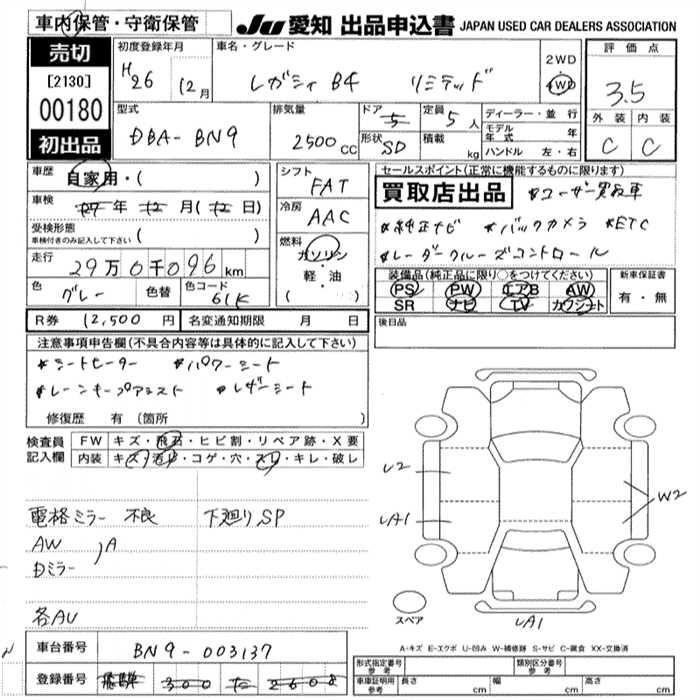 車内保管・守衛保管
JU 愛知 出品申込書 JAPAN USED CAR DEALERS ASSOCIATION
売切
[2130]
00180
初出品
初度登録年月 車名・グレード 評価点
H26 12月 レガシィ B4 リミテッド 2WD 4WD 3.5
型式 排気量 ドア 5 定員 5人 ディーラー・並行 外装 内装
DBA-BN9 2500cc 形状 SD 積載 kg モデル年式 年 C C
ハンドル 左・右
車歴 自家用・( ) シフト FAT セールスポイント(正常に機能するものに限ります)
車検 27年 12月(12日) 冷房 AAC 買取店出品 *ユーザー買取車
受検形態 車検付きのみ記入して下さい ( ) *純正ナビ *バックカメラ *ETC
走行 29万0千096km 燃料 ガソリン・軽油・( ) *レーダークルーズコントロール
色 グレー 色替 色コード 61K 装備品(純正品に限り○をつけてください) 新車保証書
PS PW エアB AW 有・無
SR ナビ TV カワシート
R券 12,500円 名変通知期限 月 日 後日品
注意事項申告欄(不具合内容等は具体的に記入して下さい)
*シートヒーター *パワーシート
*レーンキープアシスト *レザーシート
修復歴 有 (箇所 )
検査員記入欄 FW キズ・飛石・ヒビ割・リペア跡・X要
内装 キズ・汚レ・コゲ・穴・スレ・キレ・破レ
電格ミラー 不良 下廻りSP
AW
Dミラー )A
各AU
U2
UA1
W2
UA1
スペア
A-キズ E-エクボ U-凹み W-補修跡 S-サビ C-腐食 XX-交換済
車台番号 BN9-003137
登録番号 飛騨 300 た 2608
形式指定番号 参考 類別区分番号 参考
車庫証明用 参考 長さ cm 幅 cm 高さ cm